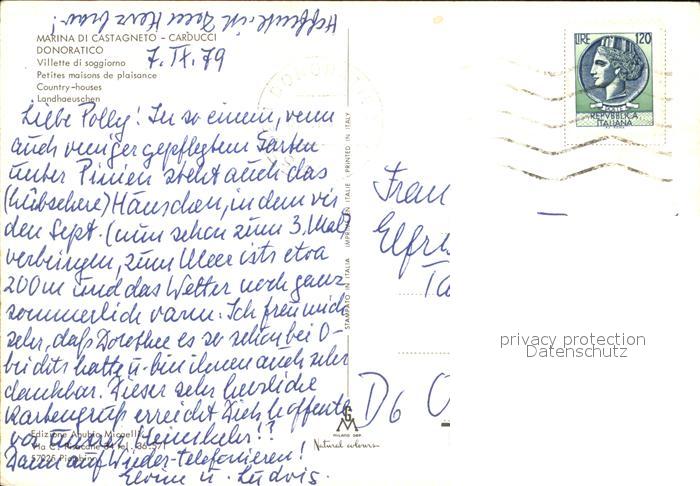 Hoffentlich ist Dein Herz brav!
MARINA DI CASTAGNETO - CARDUCCI
DONORATICO
7. IX. 79
Villette di soggiorno
Petites maisons de plaisance
Country-houses
Landhaeuschen
Liebe Polly! In so einem, wenn
auch weniger gepflegtem Garten
unter Pinien steht auch das
(hübschere) Häuschen, in dem wir
den Sept. (nun schon zum 3. Mal)
verbringen, zum Meer ists etwa
200m und das Wetter noch ganz
sommerlich warm. Ich freu mich
sehr, daß Dorothee es so schön bei O-
hatte u. bin ihnen auch sehr
dankbar. Dieser sehr herzliche
Kartengruß erreicht Dich hoffentl.
vor unserer Heimkehr!!
Dann auf Wieder-telefonieren!
u. Ludvis.
Edizione
57025 Piombino
STAMPATO IN ITALIA IMPRIMÉ EN ITALIE PRINTED IN ITALY
GM
MILANO DEP.
Natural colours
LIRE 120
POSTE
REPVBBLICA
ITALIANA
DONORAT
Frau
Elfr
D6 O
privacy protection
Datenschutz